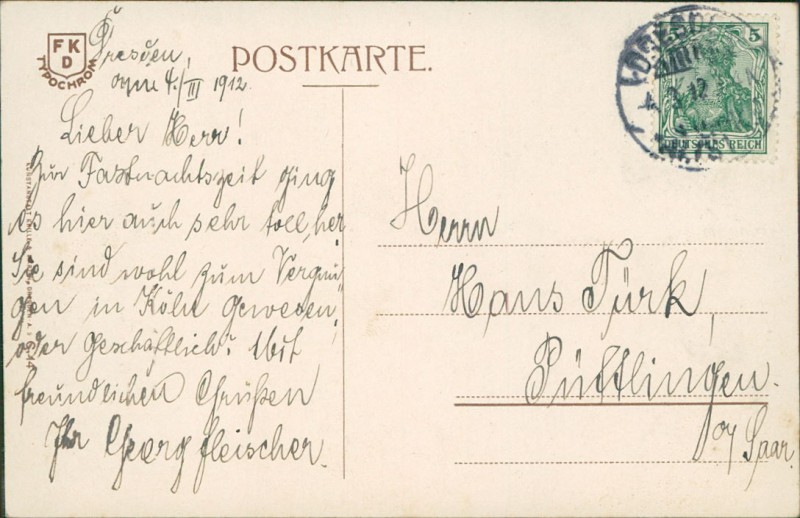 FK
D
TYPOCHROM
POSTKARTE.
Dresden,
vom 4./III 1912.
Lieber Herr!
Zur Fastnachtszeit ging
es hier auch sehr toll her
Sie sind wohl zum Vergnü-
gen in Köln gewesen,
oder geschäftlich? Mit
freundlichen Grüßen
Ihr Georg Fleischer.
5
DEUTSCHES REICH
Herrn
Hans Türk,
Püttlingen.
a/ Saar.